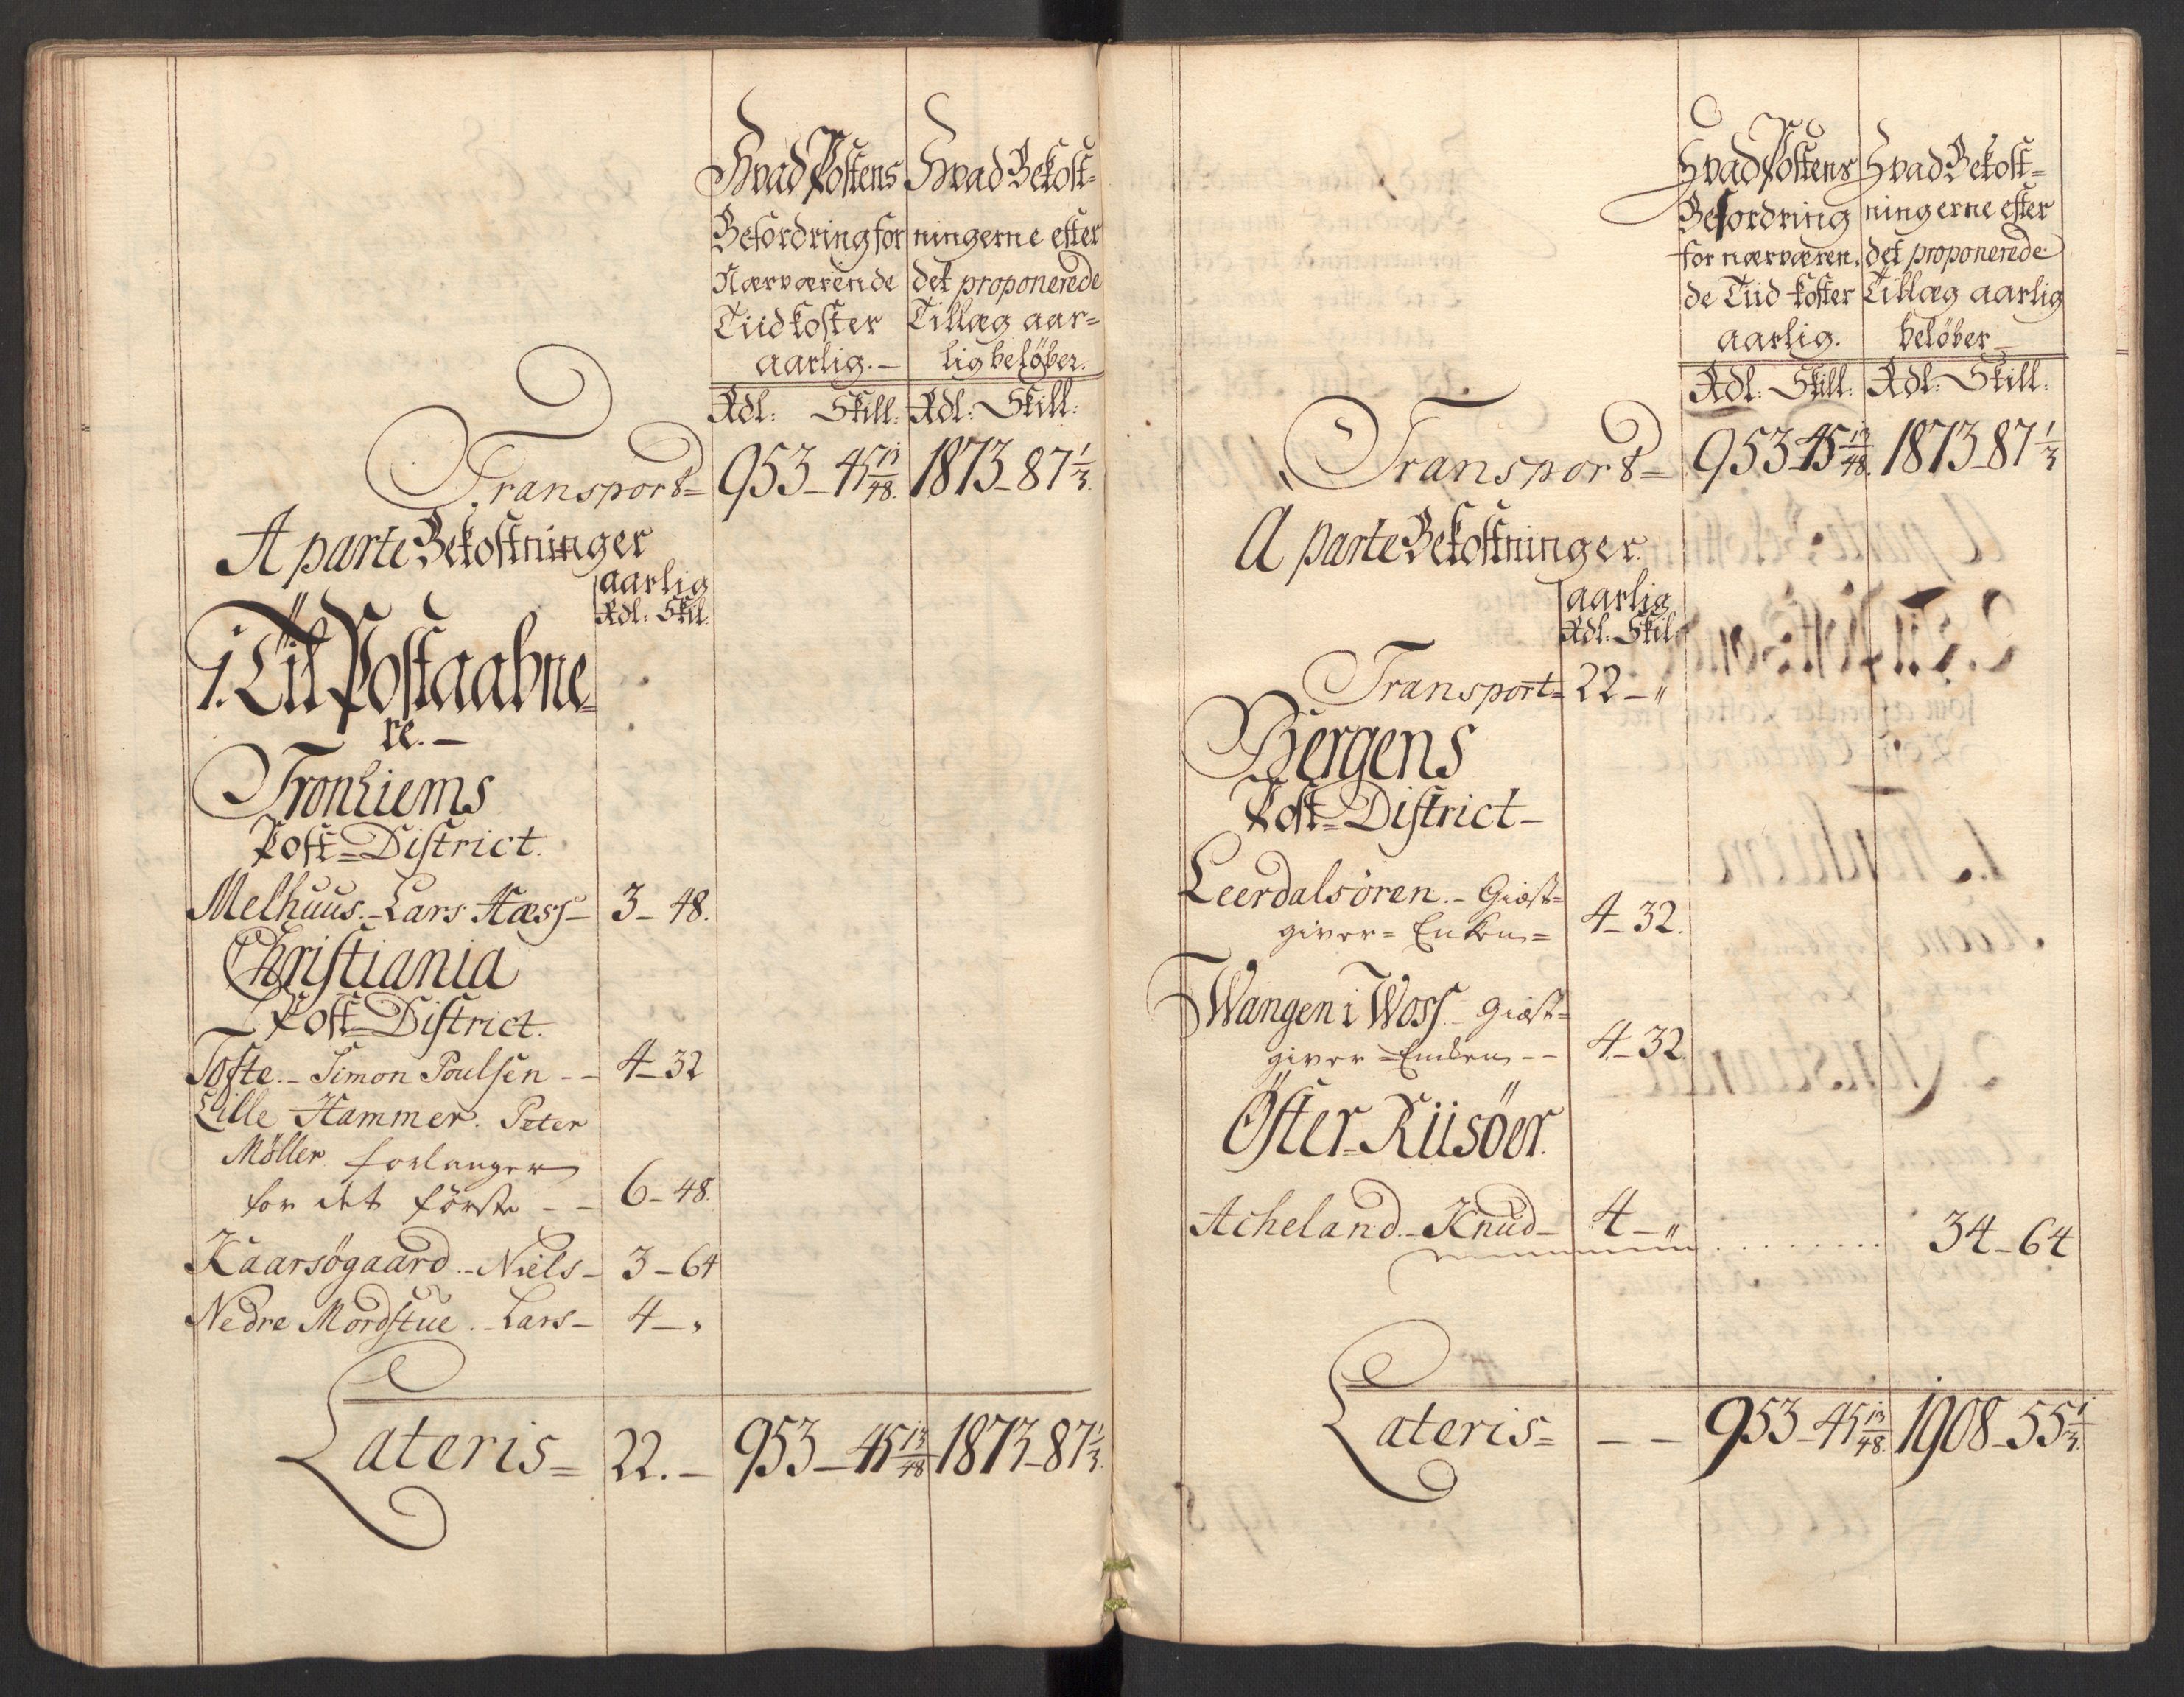 Hvad Postens
Befordring for
Nærværende
Tiid koster
aarlig. –
Hvad Bekost=
ningerne efter
det proponerede
Tillæg aar=
lig beløber.
Rdl: Skill: Rdl: Skill:
Transport= 953 – 45 13/48. 1873 – 87 1/3.
A parte Bekostninger
aarlig
Rdl: Skil:
1. Til Postaabne=
re. –
Tronhiems
Post=District.
Melhuus. – Lars Næss – 3 – 48.
Christiania
Post=District.
Tofte. – Simon Poulsen – – 4 – 32
Lille Hammer. Peter
Möller forlanger
for det förste – – 6 – 48.
Kaarsøgaard. – Niels – 3 – 64
Nedre Mordstue. – Lars – 4 – „
Lateris = 22. – 953 – 45 13/48 1873 – 87 1/3.
Hvad Postens
Befordring
for nærværen.
de Tiid koster
aarlig.
Hvad Bekost=
ningerne efter
det proponerede
Tillæg aarlig
beløber –
Rdl: Skill: Rdl: Skill:
Transport= 953 – 45 13/48. 1873 – 87 1/3
A parte Bekostninger.
aarlig
Rdl: Skil:
Transport= 22 – „
Bergens
Post=District –
Leerdalsören. – Giæst=
giver= Enken = 4 – 32.
Wangen i Woss – Giæst=
giver = Enken – – 4 – 32.
Öster=Riisöer.
Acheland. – Knud – 4 – „ . . . . . . . . 34 – 64
Lateris = – – 953 – 45 13/48. 1908 – 55 1/3.